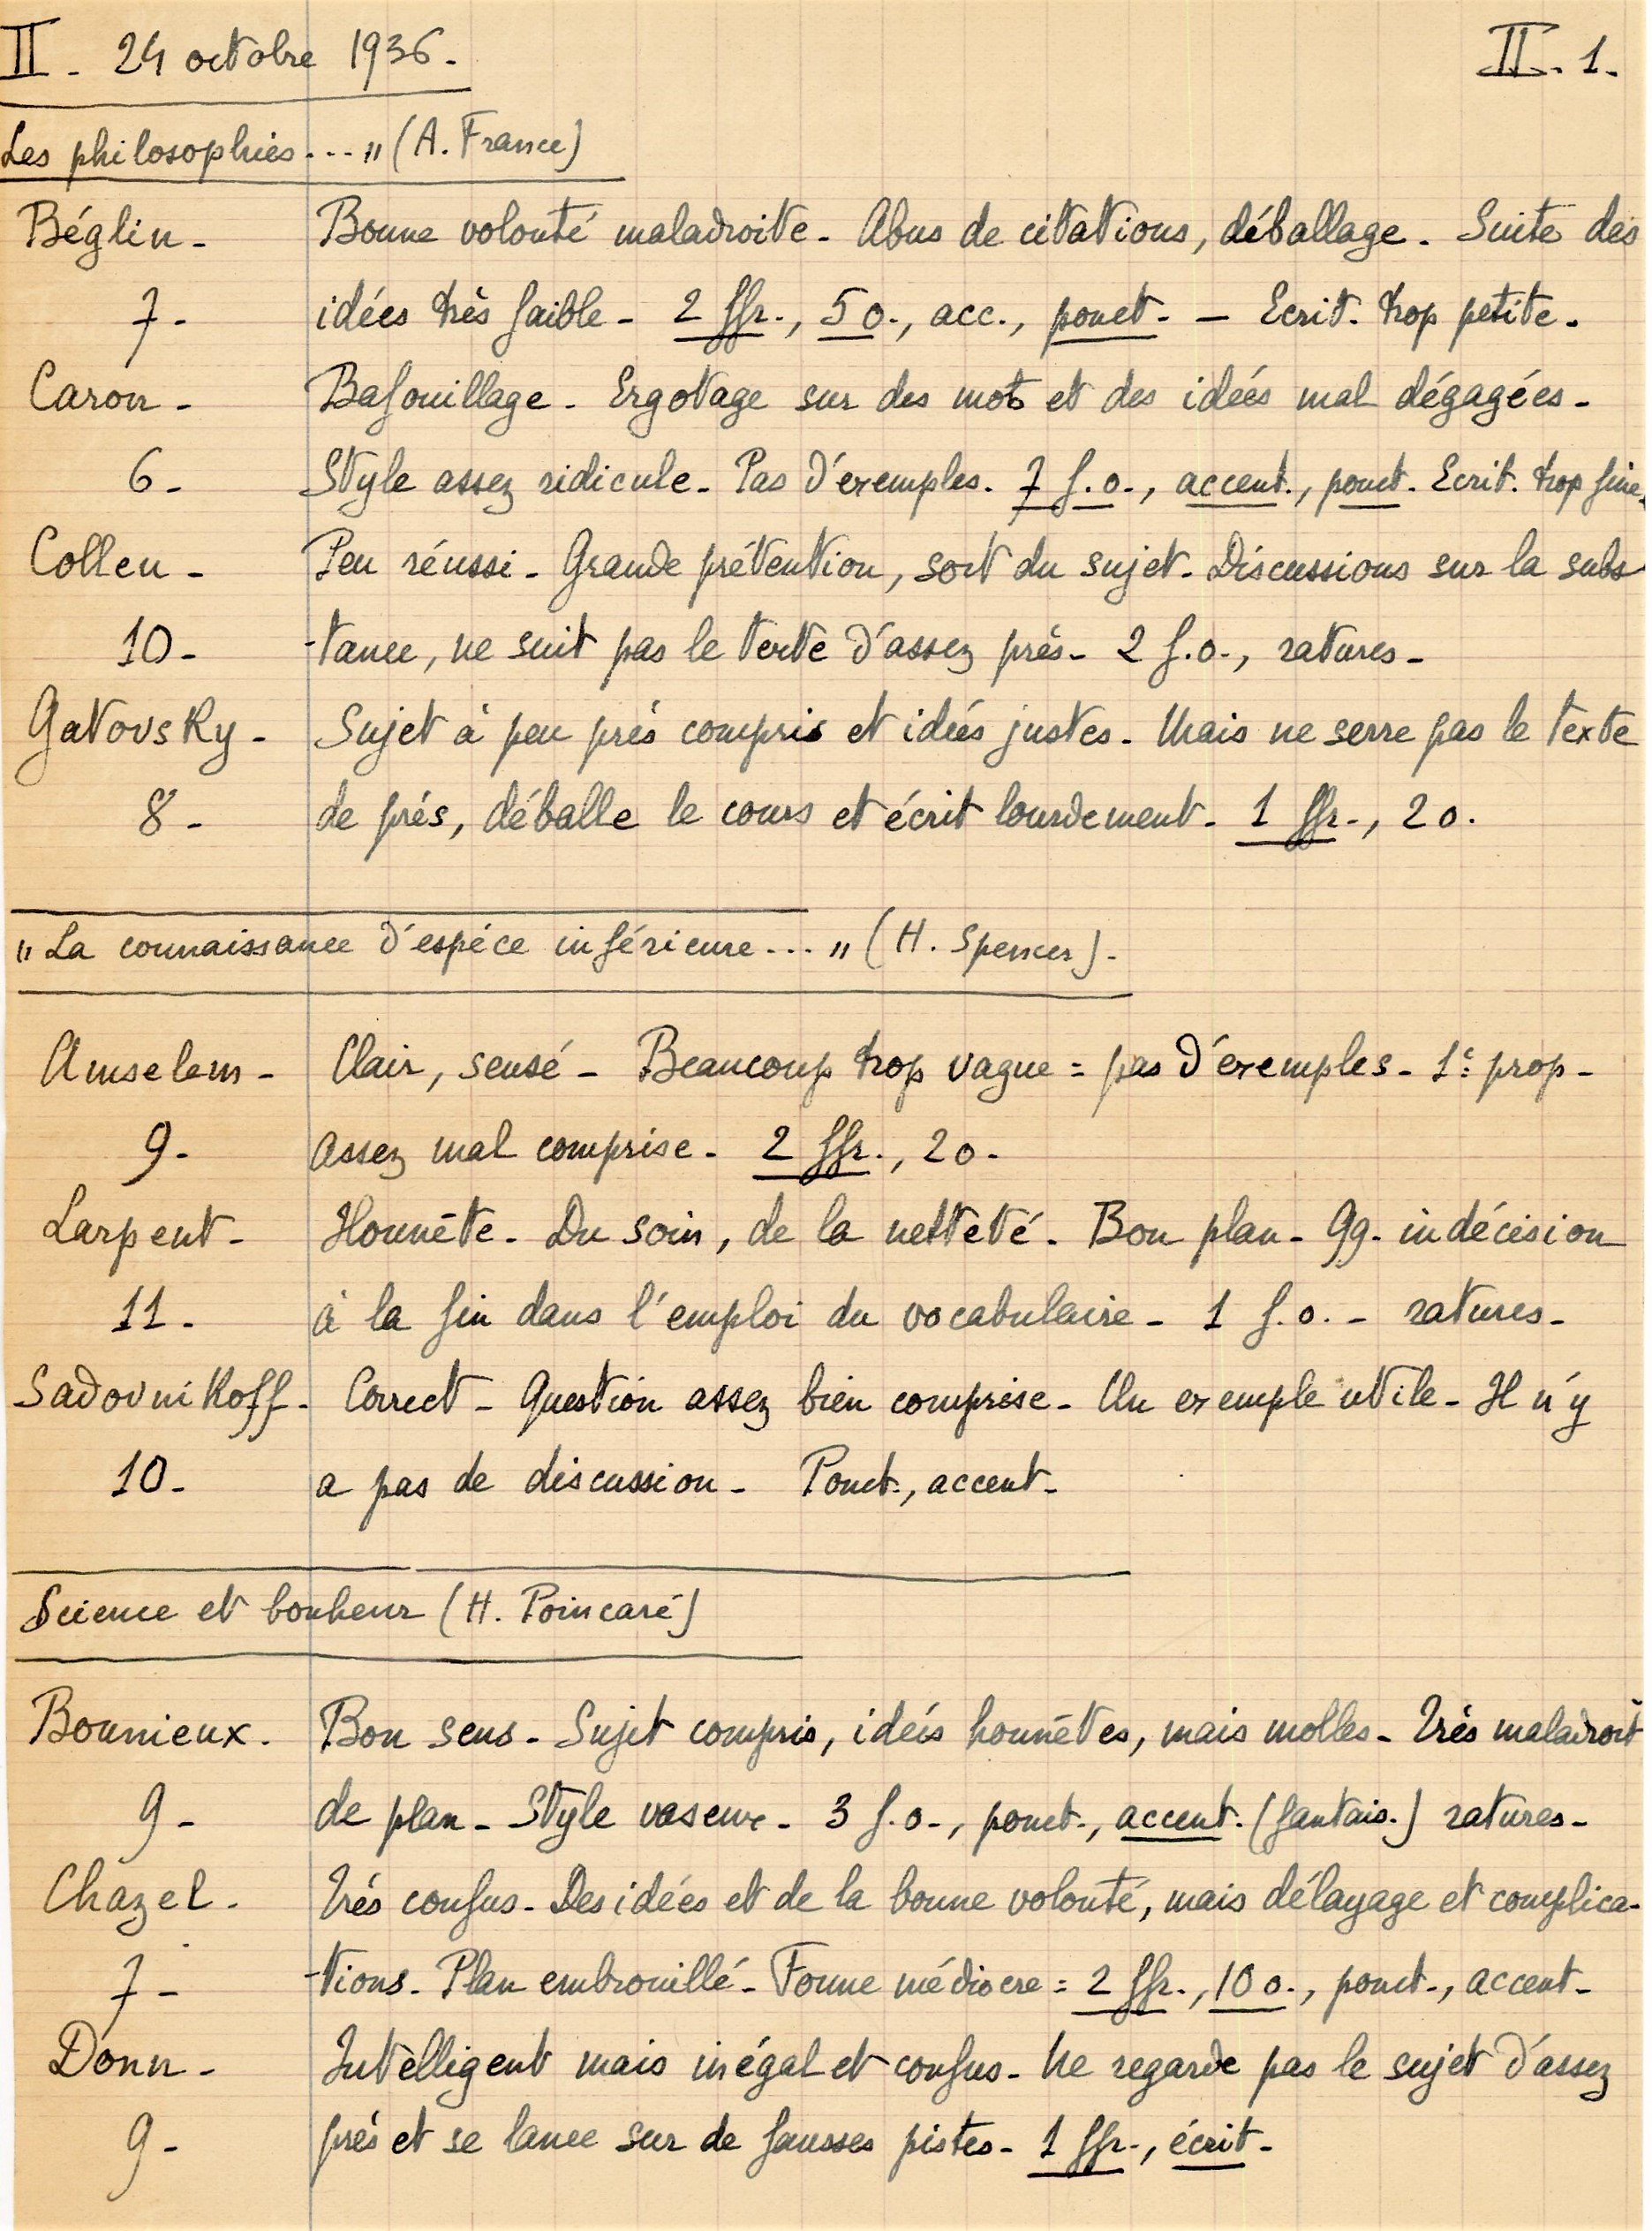 II. 24 octobre 1936. II. 1.
Les philosophies... " (A. France)
Béglin. Bonne volonté maladroite. Abus de citations, déballage. Suite des
7. idées très faible. 2 ffr., 5 o., acc., ponct. — Ecrit. trop petite.
Caron. Bafouillage. Ergotage sur des mots et des idées mal dégagées.
6. Style assez ridicule. Pas d'exemples. 7 f.o., accent., ponct. Ecrit. trop fine.
Collen. Peu réussi. Grande prétention, sort du sujet. Discussions sur la subs
10. -tance, ne suit pas le texte d'assez près. 2 f.o., ratures.
Gatovsky. Sujet à peu près compris et idées justes. Mais ne serre pas le texte
8. de près, déballe le cours et écrit lourdement. 1 ffr., 2 o.
" La connaissance d'espèce inférieure... " (H. Spencer).
Amselem. Clair, sensé. Beaucoup trop vague = pas d'exemples. 1e prop.
9. assez mal comprise. 2 ffr., 2 o.
Larpent. Honnête. Du soin, de la netteté. Bon plan. Qq. indécision
11. à la fin dans l'emploi du vocabulaire. 1 f.o. - ratures.
Sadovnikoff. Correct. Question assez bien comprise. Un exemple utile. Il n'y
10. a pas de discussion. Ponct., accent.
Science et bonheur (H. Poincaré)
Bounieux. Bon sens. Sujet compris, idées honnêtes, mais molles. Très maladroit
9. de plan. Style vaseux. 3 f.o., ponct., accent. (fantais.) ratures.
Chazel. Très confus. Des idées et de la bonne volonté, mais délayage et complica-
7. -tions. Plan embrouillé. Forme médiocre = 2 ffr., 10 o., ponct., accent.
Donn. Intelligent mais inégal et confus. Ne regarde pas le sujet d'assez
9. près et se lance sur de fausses pistes. 1 ffr., écrit.